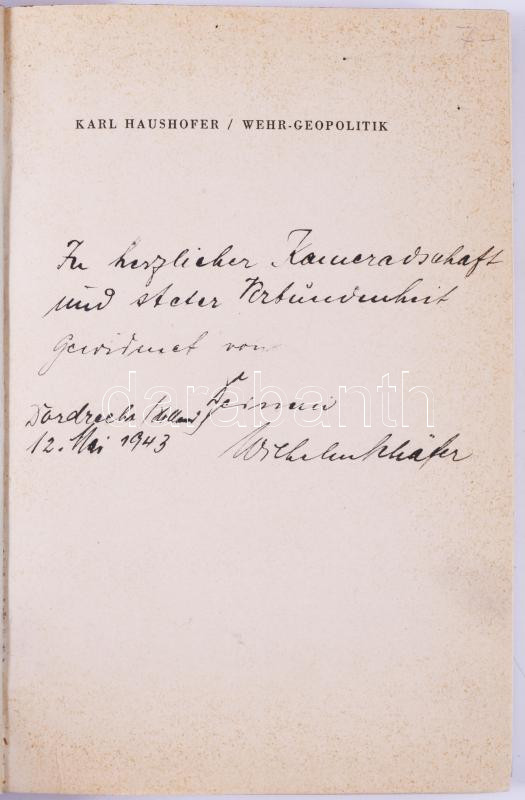 7.-
KARL HAUSHOFER / WEHR-GEOPOLITIK
In herzlicher Kameradschaft
und steter Verbundenheit
gewidmet von
Deinem
Dordrecht (Holland)
12. Mai 1943
Wilhelm Schäfer
darabanth